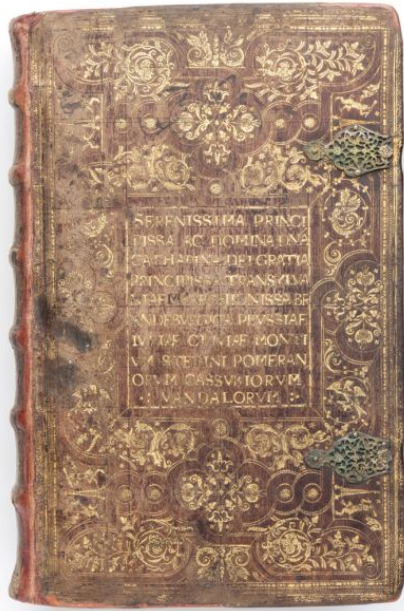 SERENISSIMA PRINCI
PISSA AC DOMINA DNA
CATHARINA DEI GRATIA
PRINCIPISSA TRANSYLVA
NIAE MARCHIONISSA BR
ANDEBVRGICA PRVSSIAE
IVLIAE CLIVIAE MONTI
VM STETINI POMERAN
ORVM CASSVBIORVM
: VANDALORVM :